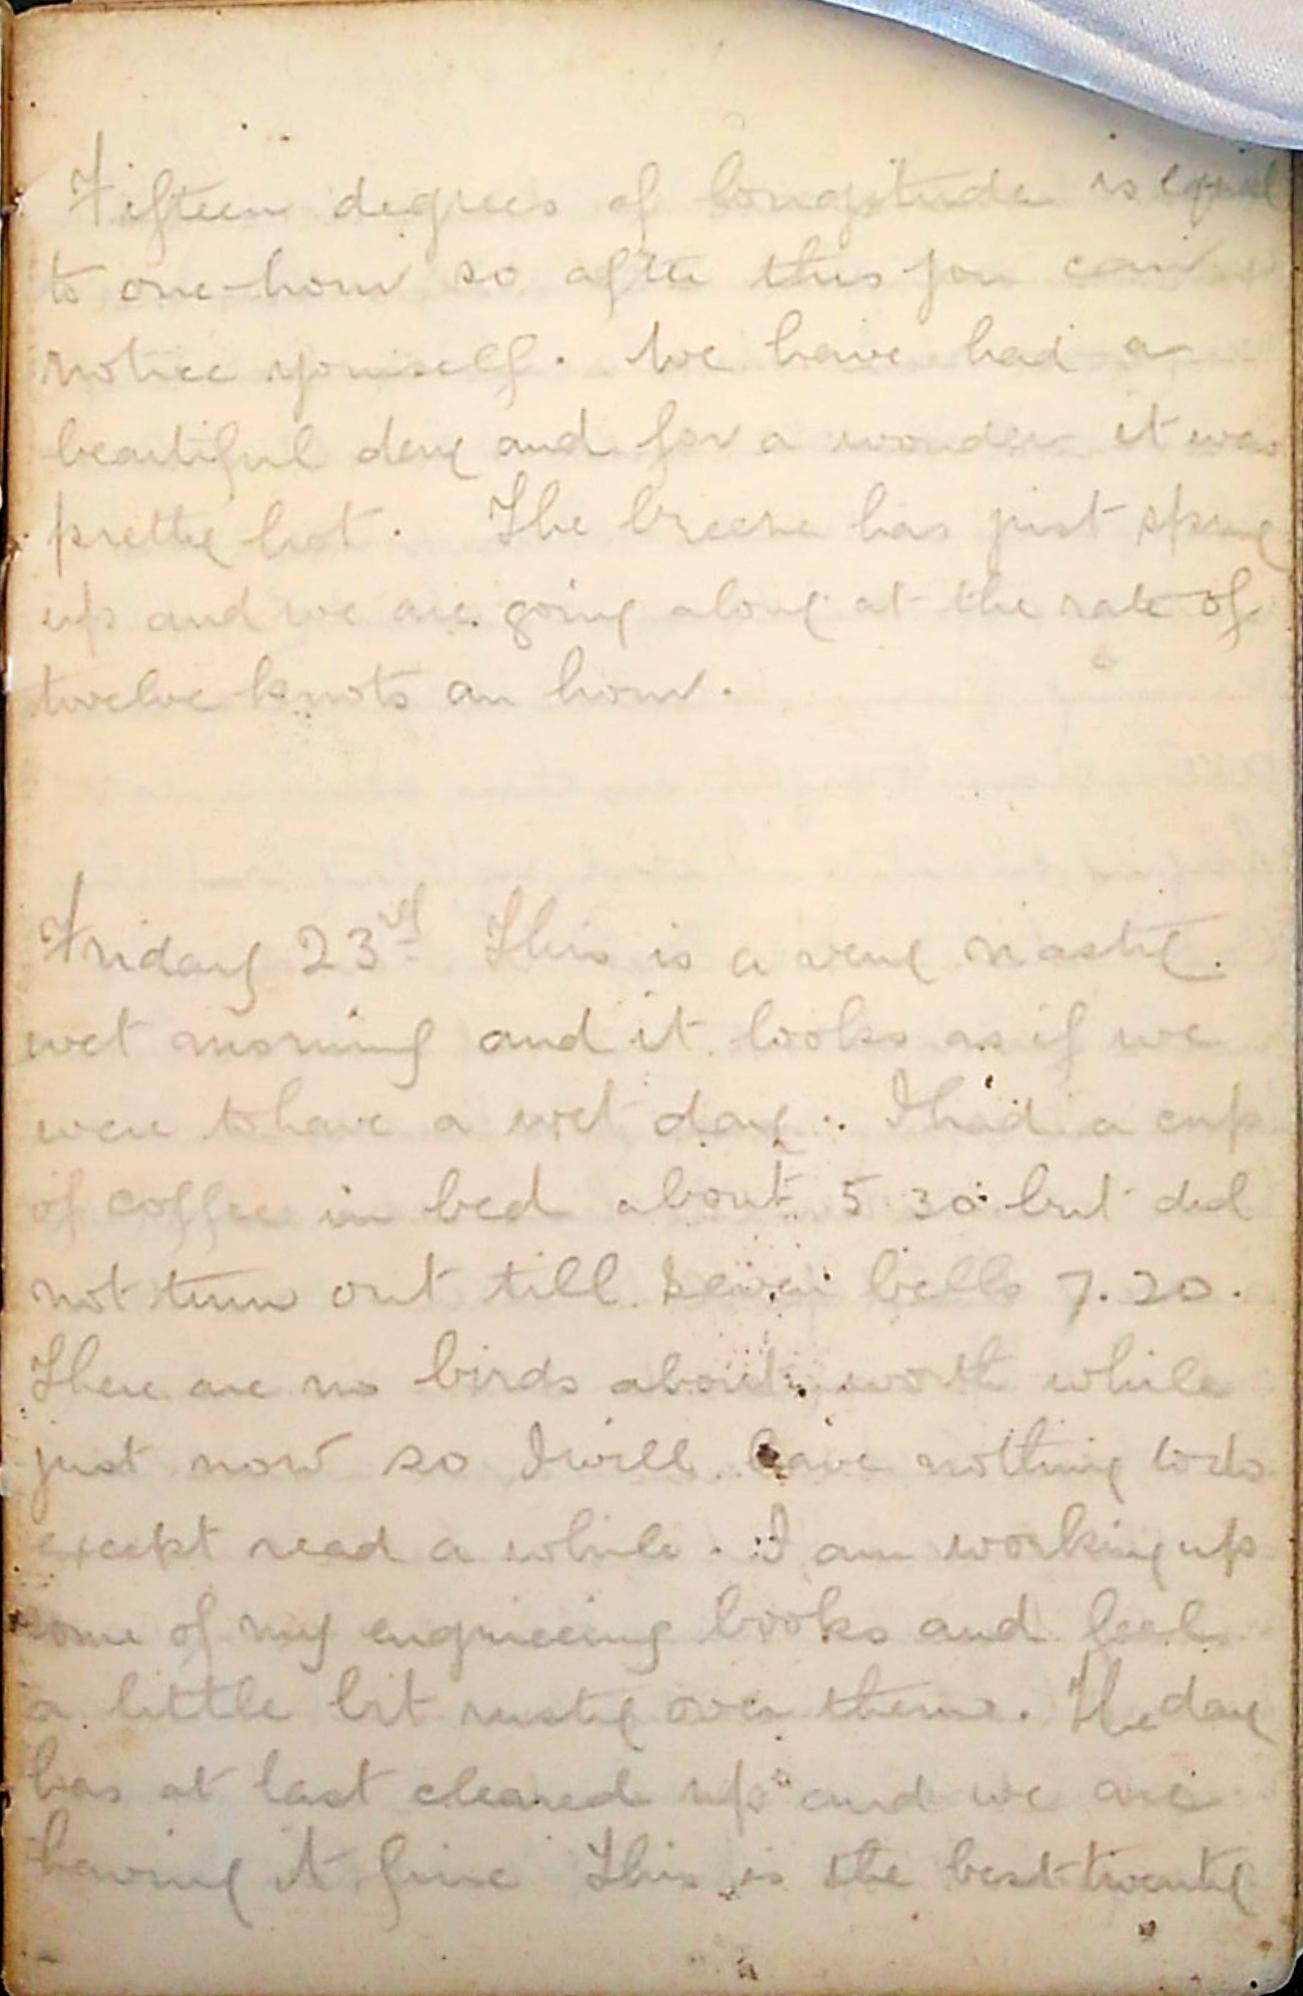 Fifteen degrees of longitude is equal
to one hour so after this you can
notice yourself. We have had a
beautiful day and for a wonder it was
pretty hot. The breeze has just sprung
up and we are going along at the rate of
twelve knots an hour.
Friday 23rd This is a very nasty.
wet morning and it looks as if we
were to have a wet day. I had a cup
of coffee in bed about 5 30 but did
not turn out till seven bells 7.20.
There are no birds about worth while
just now so I will have nothing to do
except read a while. I am working up
some of my engineeing books and feel
a little bit rusty over them. The day
has at last cleared up and we are
having it fine This is the best twenty